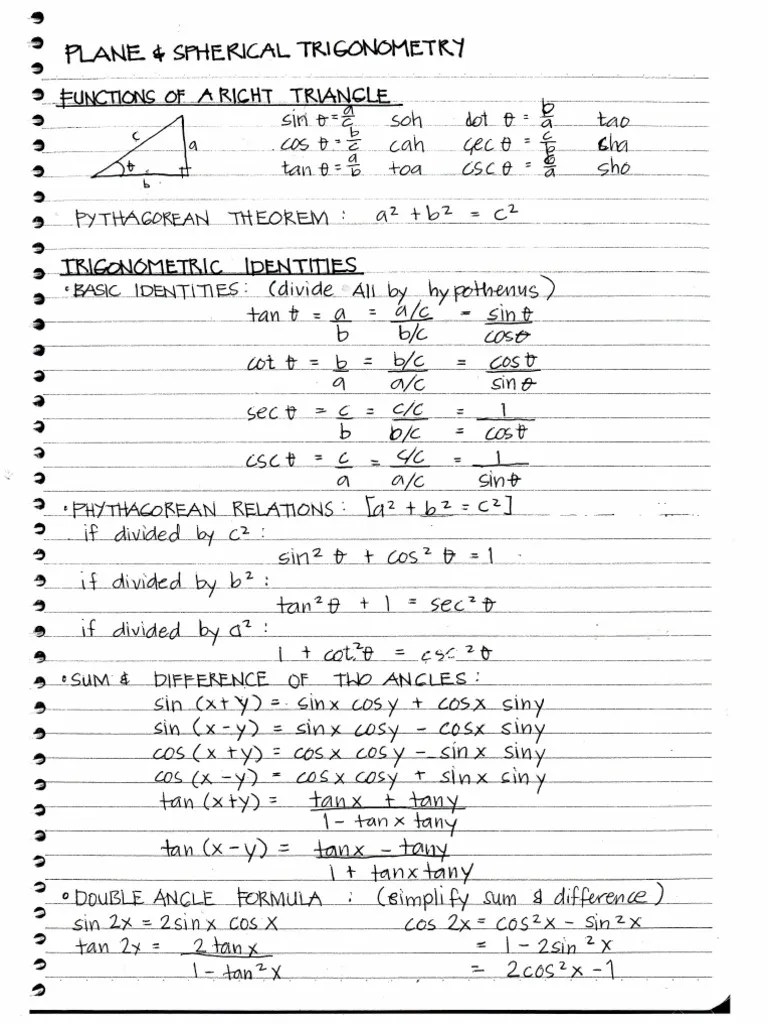 PLANE & SPHERICAL TRIGONOMETRY
FUNCTIONS OF A RIGHT TRIANGLE
sin θ = a/c soh cot θ = b/a tao
cos θ = b/c cah sec θ = c/b sha
tan θ = a/b toa csc θ = c/a sho
c
a
θ
b
PYTHAGOREAN THEOREM : a² + b² = c²
TRIGONOMETRIC IDENTITIES
• BASIC IDENTITIES: (divide All by hypothenus)
tan θ = a/b = a/c / b/c = sin θ / cos θ
cot θ = b/a = b/c / a/c = cos θ / sin θ
sec θ = c/b = c/c / b/c = 1 / = cos θ
csc θ = c/a = c/c / a/c = 1 / sin θ
• PHYTHAGOREAN RELATIONS: [a² + b² = c²]
if divided by c² :
sin² θ + cos² θ = 1
if divided by b² :
tan² θ + 1 = sec² θ
if divided by a² :
1 + cot² θ = csc² θ
• SUM & DIFFERENCE OF TWO ANGLES :
sin (x+y) = sinx cosy + cosx siny
sin (x-y) = sinx cosy - cosx siny
cos (x+y) = cosx cosy - sinx siny
cos (x-y) = cosx cosy + sinx siny
tan (x+y) = tanx + tany / 1 - tanx tany
tan (x-y) = tanx - tany / 1 + tanx tany
• DOUBLE ANGLE FORMULA : (simplify sum & difference)
sin 2x = 2sinx cosx cos 2x = cos²x - sin²x
tan 2x = 2 tanx / 1 - tan²x = 1 - 2sin²x
= 2cos²x - 1